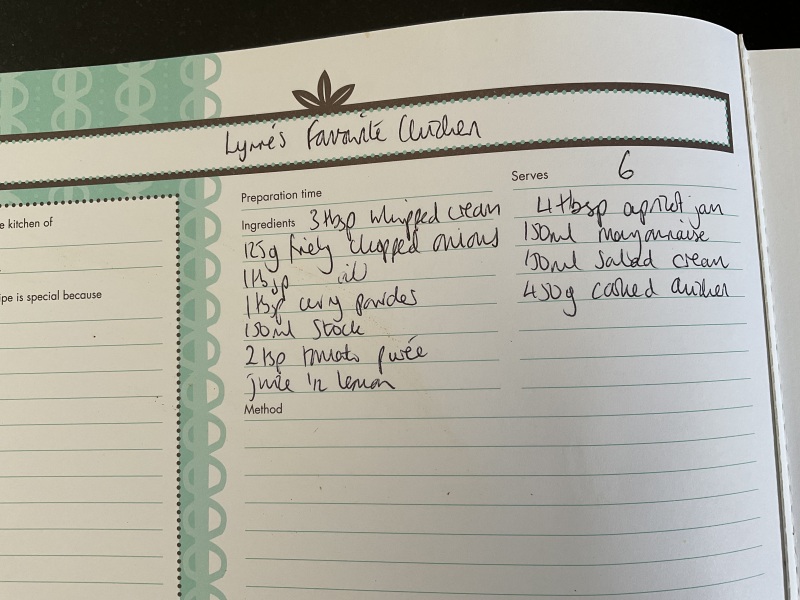 Lynne's Favourite Chicken
e kitchen of
ipe is special because
Preparation time
Serves 6
Ingredients 3 tbsp whipped cream
125g finely chopped onions
1 tbsp oil
1 tbsp curry powder
150ml stock
2 tsp tomato purée
juice 1/2 lemon
4 tbsp apricot jam
150ml mayonnaise
150ml salad cream
450g cooked chicken
Method